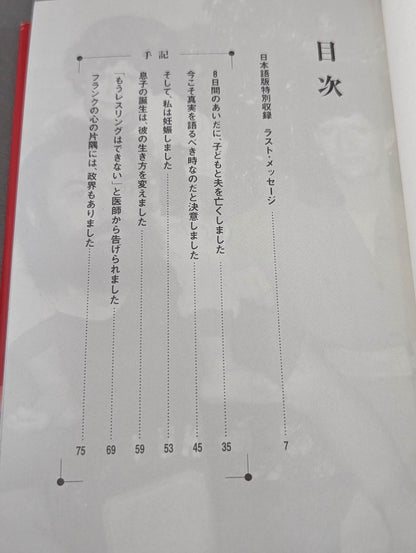 目次
日本語版特別収録 ラスト・メッセージ……7
手記
8日間のあいだに、子どもと夫を亡くしました……35
今こそ真実を語るべき時なのだと決意しました……45
そして、私は妊娠しました……53
息子の誕生は、彼の生き方を変えました……59
「もうレスリングはできない」と医師から告げられました……69
フランクの心の片隅には、政界もありました……75